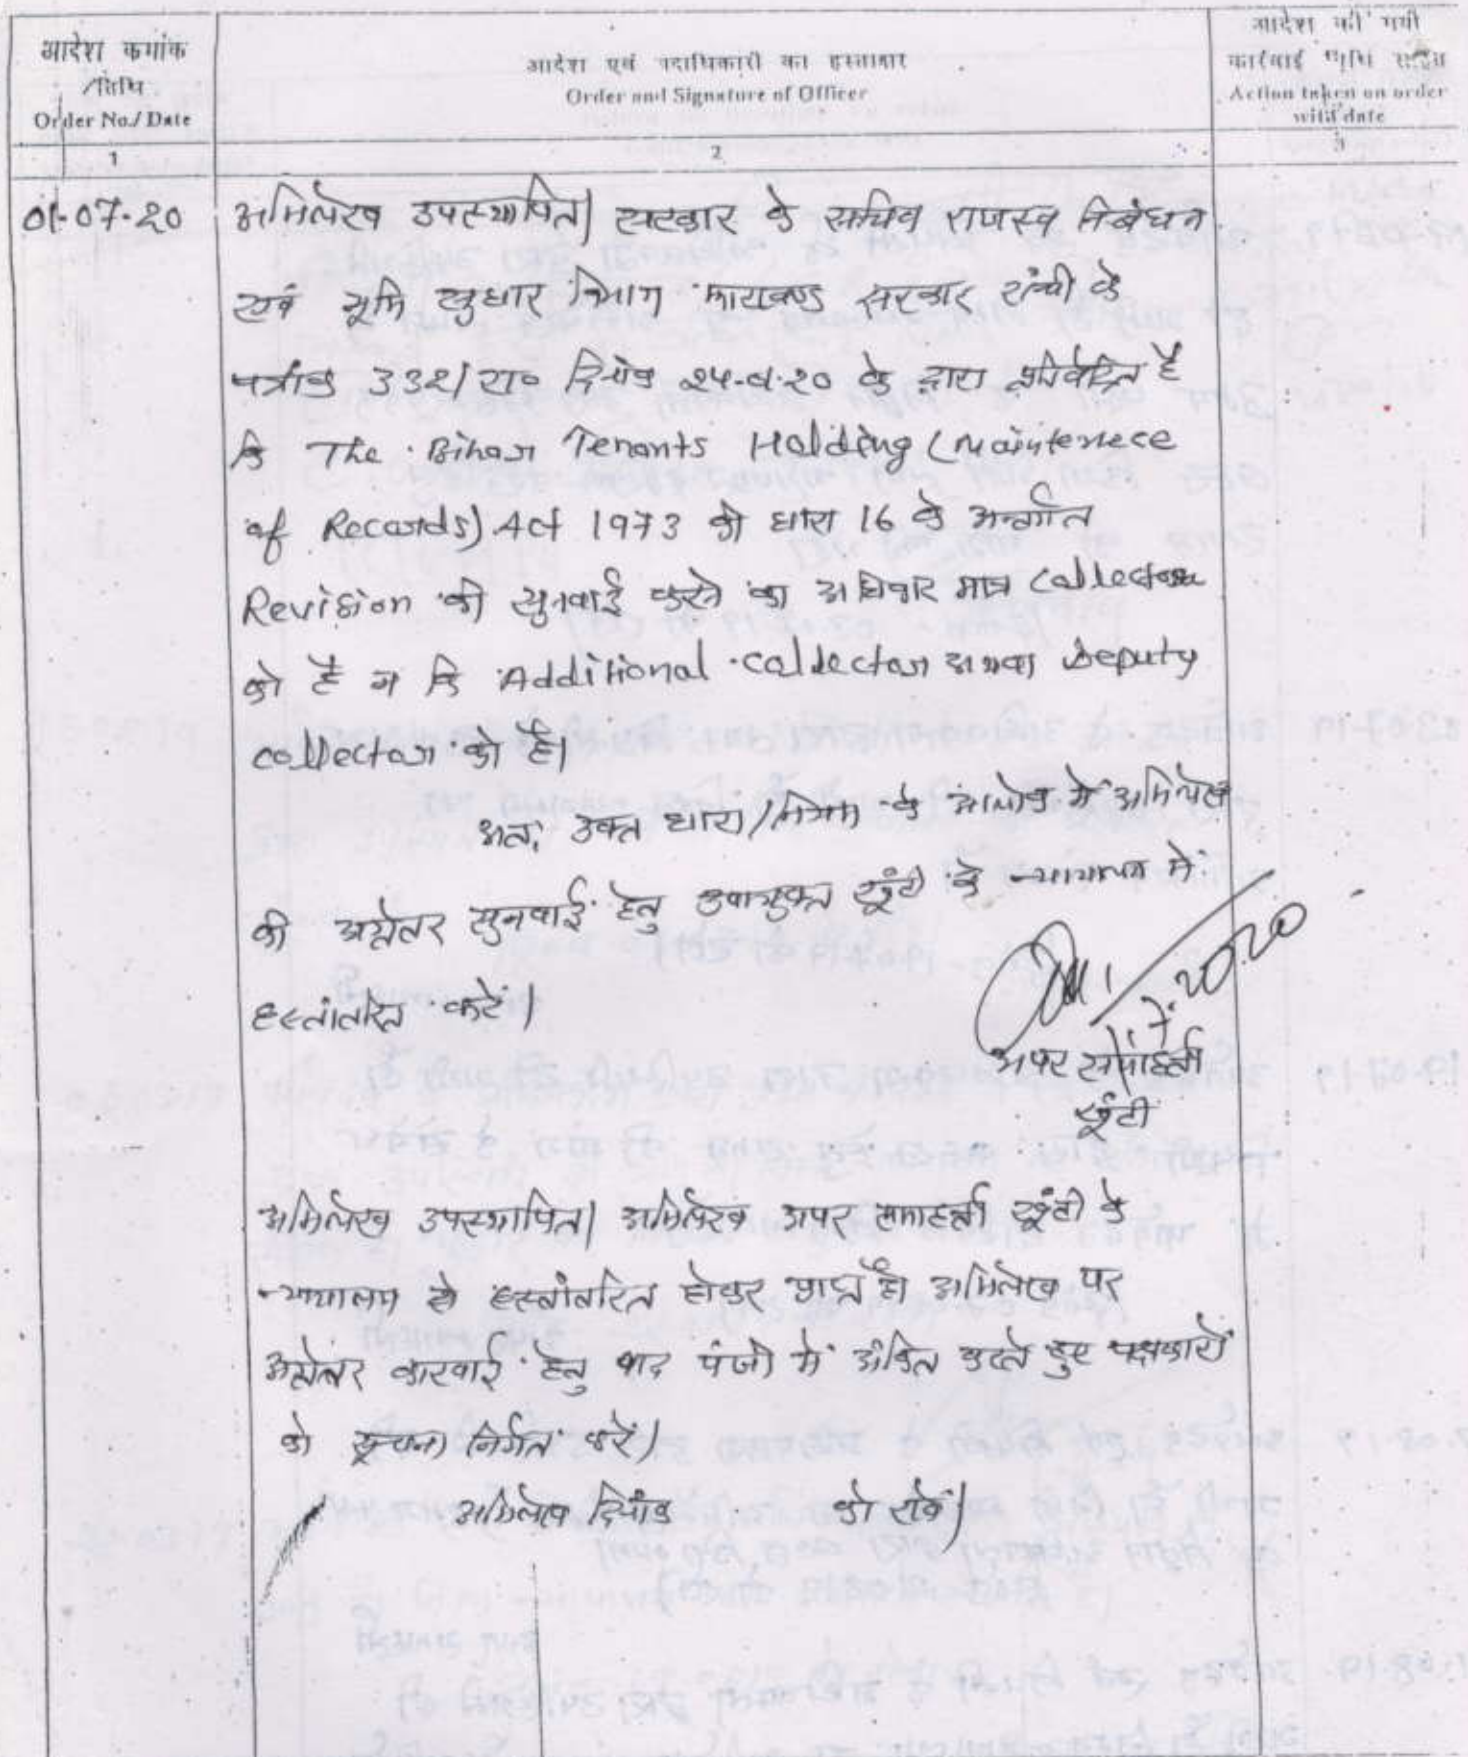 आदेश कमांक
/तिथि
Order No./ Date
आदेश एवं पदाधिकारी का हस्ताक्षर
Order and Signature of Officer
आदेश की गयी
कार्रवाई
Action taken on order
with date
1
2
3
01-07-20
अभिलेख उपस्थापित। सरकार के सचिव राजस्व निबंधन
एवं भूमि सुधार विभाग झारखण्ड सरकार रांची के
पत्रांक 332/रा० दिनांक 24-6-20 के द्वारा प्रतिवेदित है
कि The Bihar Tenants Holding (Maintenece
of Records) Act 1973 की धारा 16 के अन्तर्गत
Revision की सुनवाई करने का अधिकार मात्र Collector
को है न कि Additional Collector अथवा Deputy
Collector को है।
अतः उक्त धारा/नियम के आलोक में अभिलेख
की अग्रेतर सुनवाई हेतु उपायुक्त खूंटी के न्यायालय में
हस्तांतरित करें।
1.7.2020
अपर समाहर्ता
खूंटी
अभिलेख उपस्थापित। अभिलेख अपर समाहर्ता खूंटी के
न्यायालय से हस्तांतरित होकर प्राप्त है। अभिलेख पर
अग्रेतर कारवाई हेतु वाद पंजी में अंकित करते हुए पक्षकारों
को सूचना निर्गत करें।
अभिलेख दिनांक को रखें।